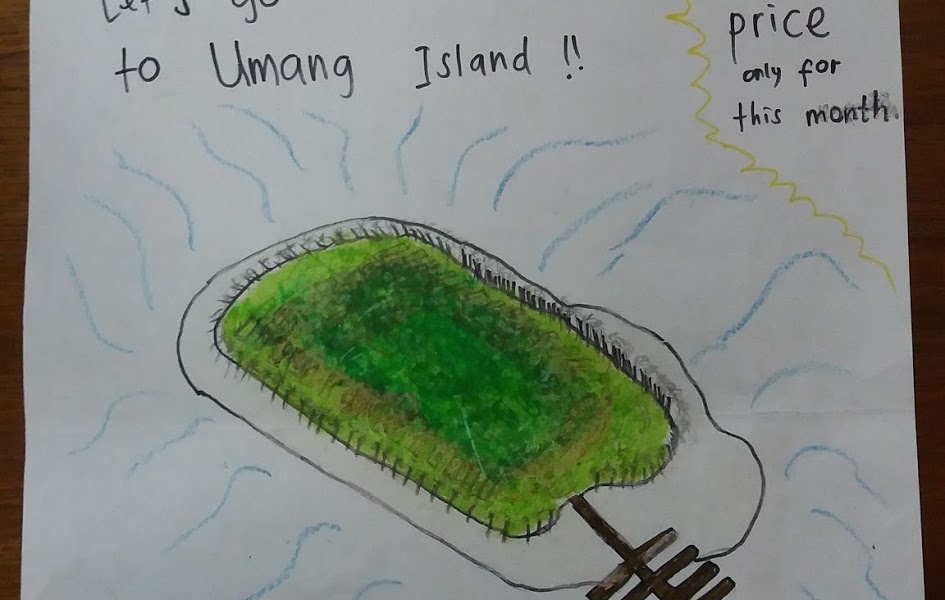 Let's go
to Umang Island !!
price
only for
this month.